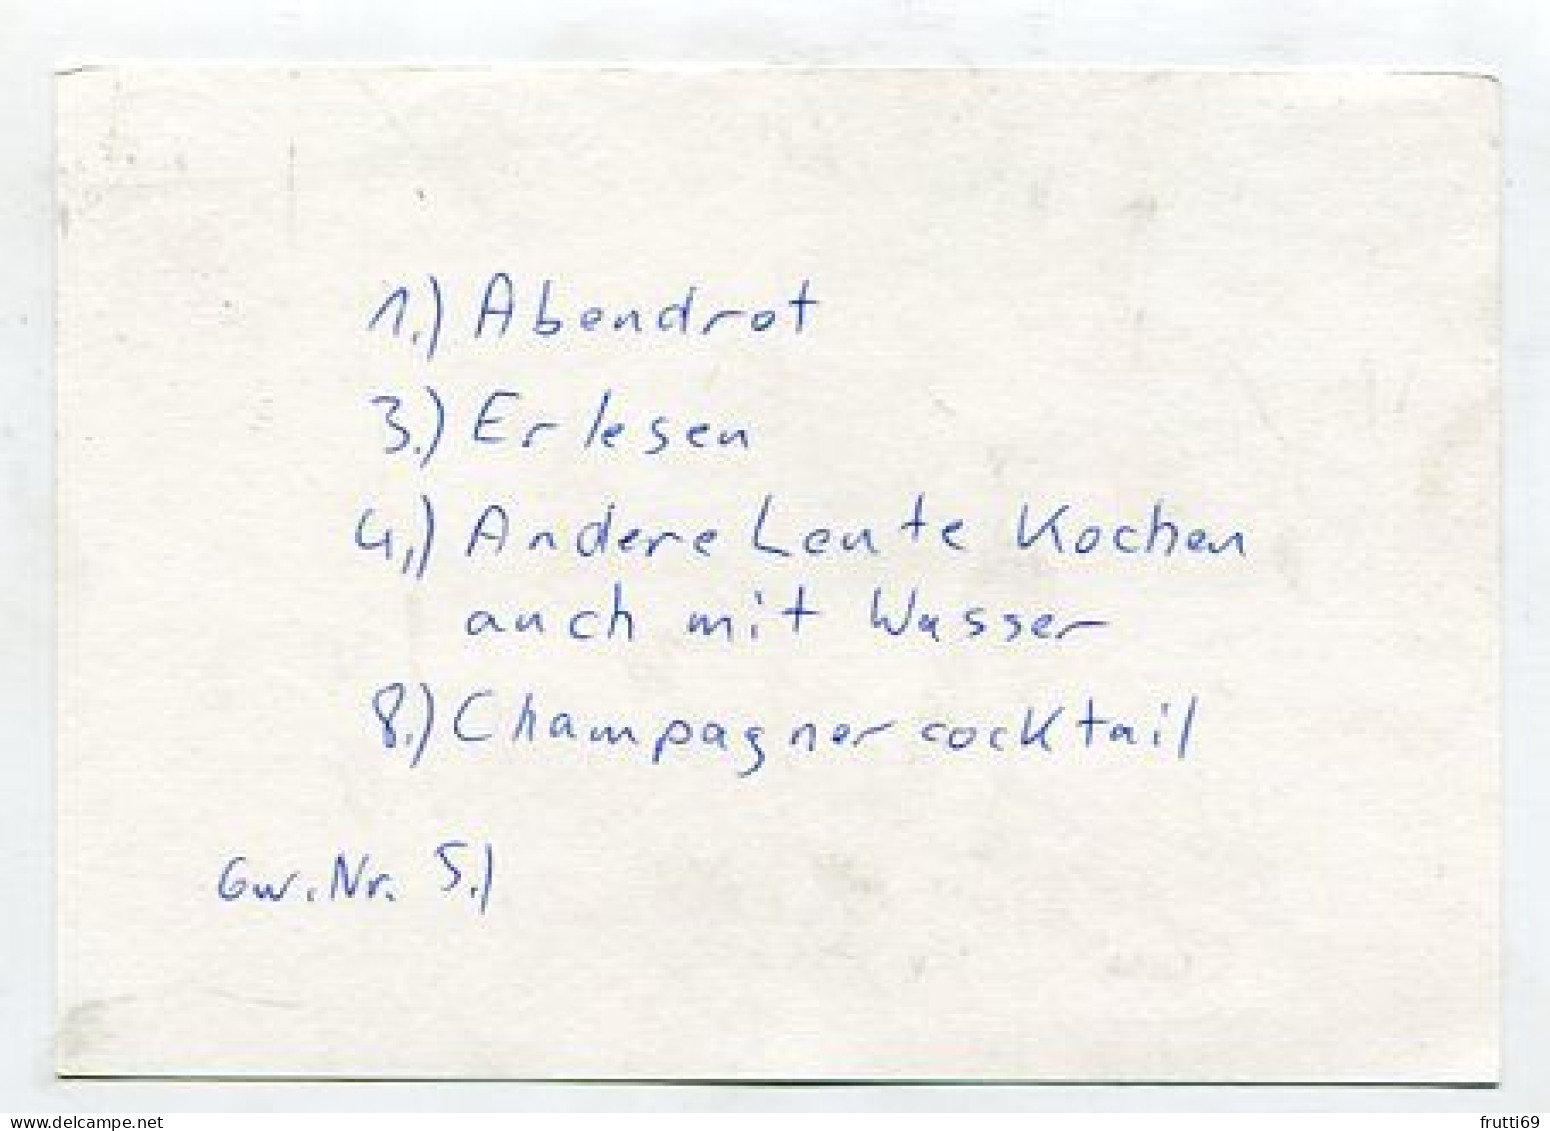 1.) Abendrot
3.) Erlesen
4.) Andere Leute Kochen
auch mit Wasser
8.) Champagnercocktail
Gw. Nr. 5.)
www.delcampe.net
frutti69